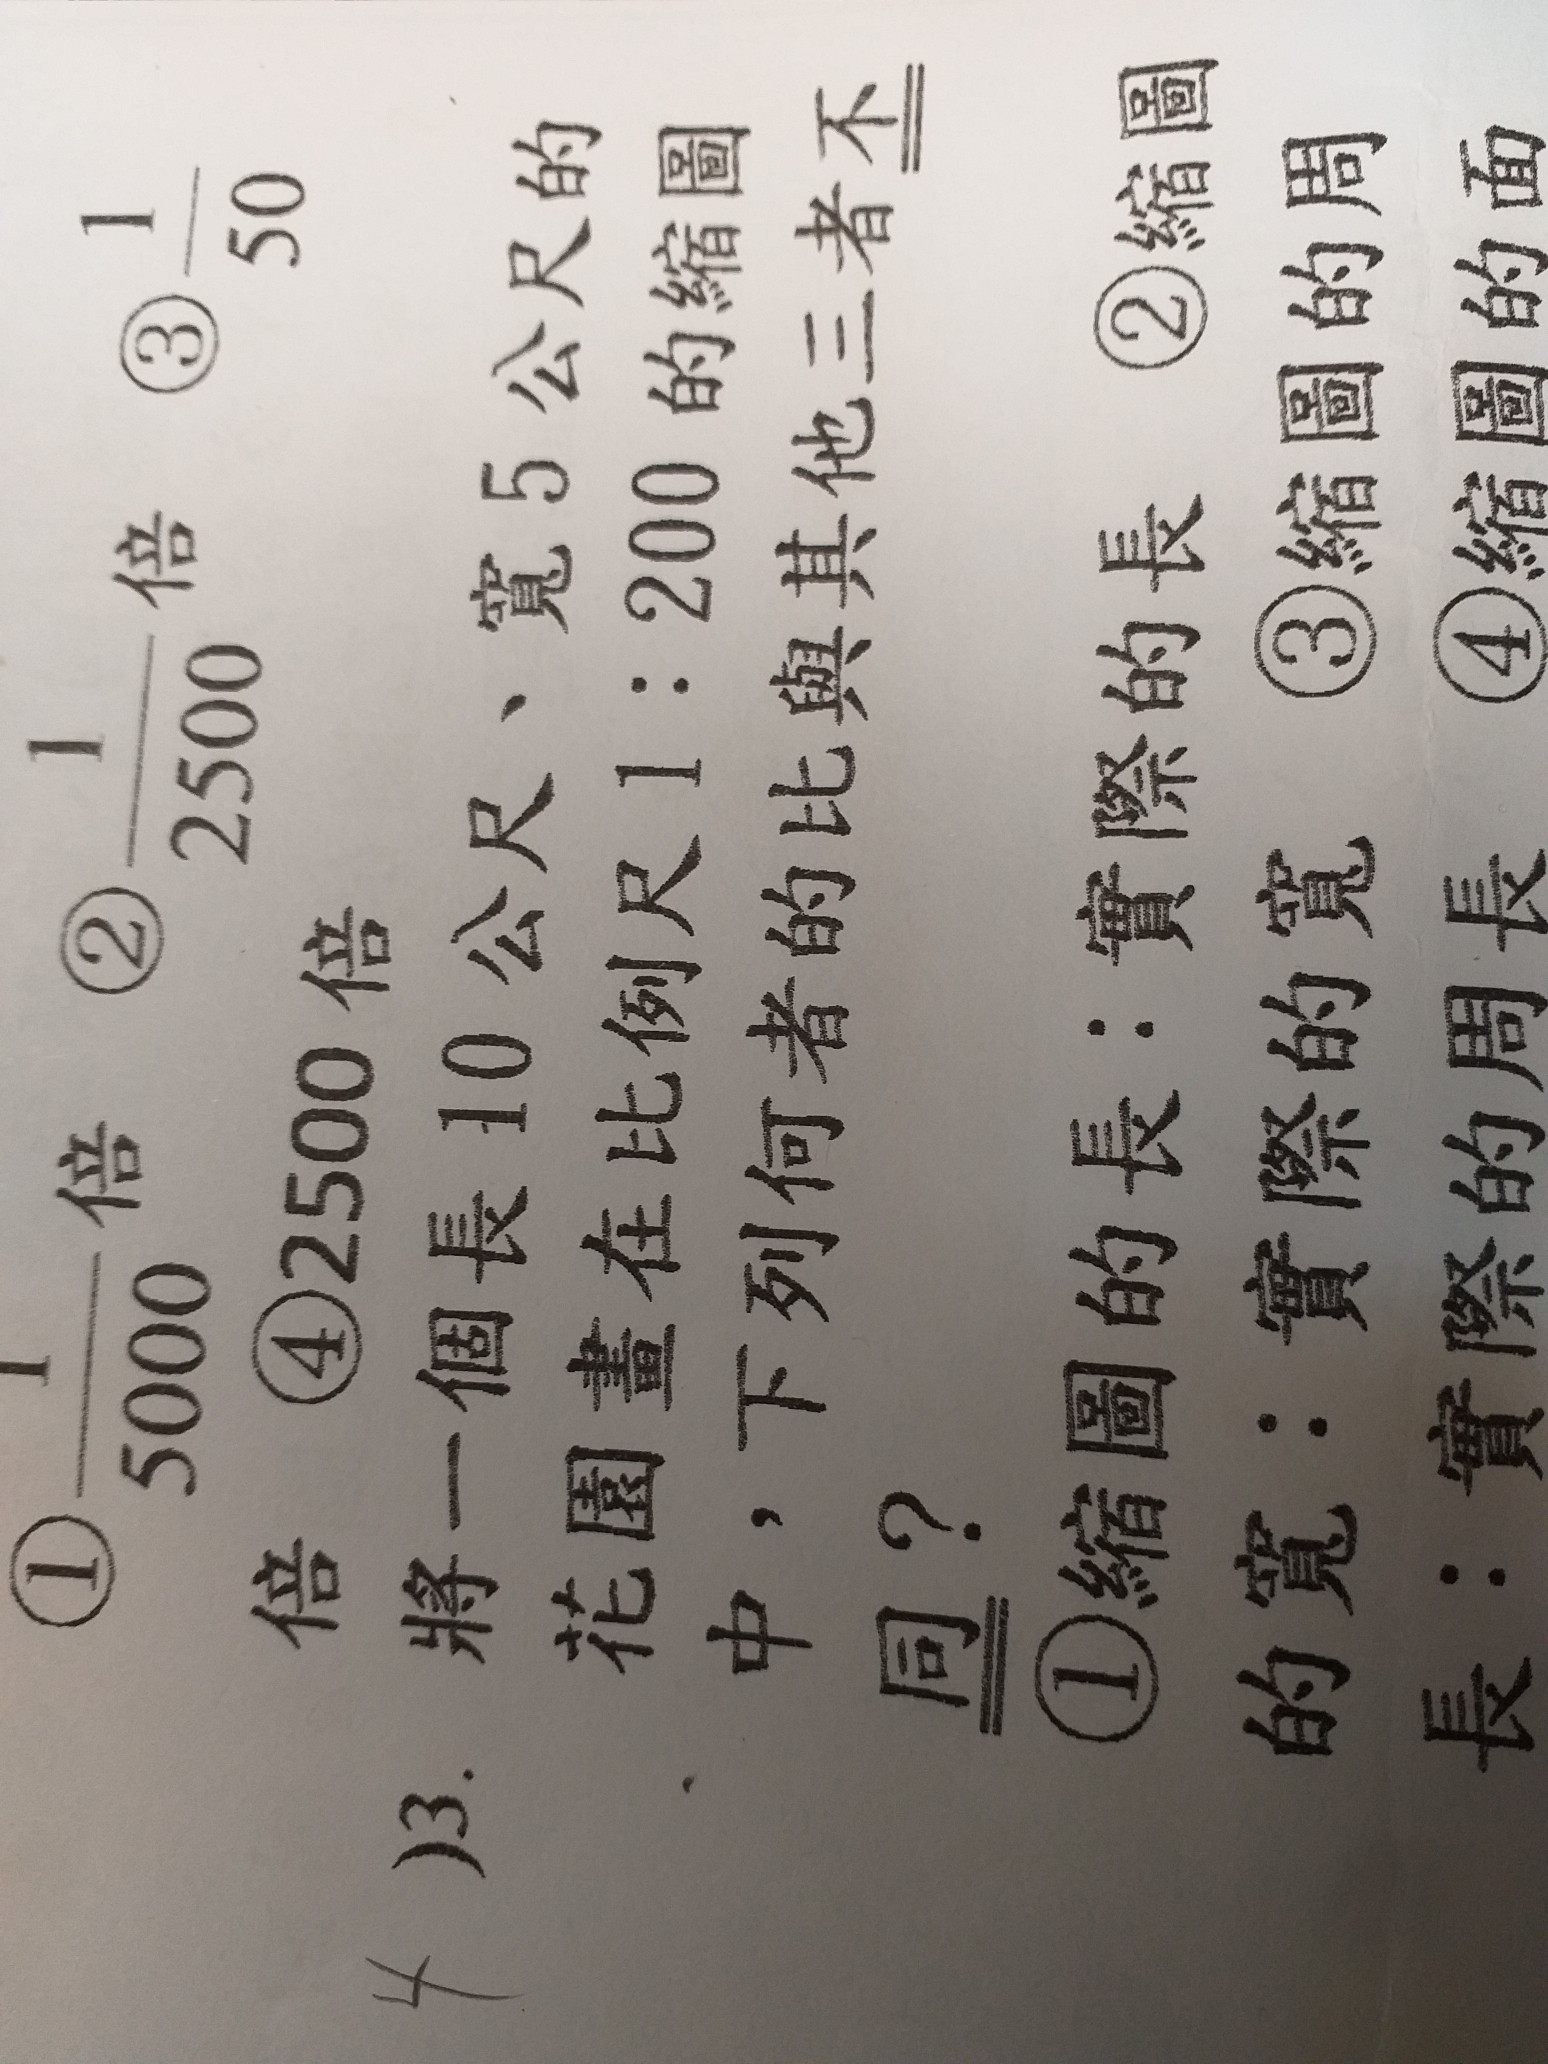 ① 1/5000 倍 ② 1/2500 倍 ③ 1/50
倍 ④2500 倍
4 )3. 將一個長 10 公尺、寬 5 公尺的
花園畫在比例尺 1：200 的縮圖
中，下列何者的比與其他三者不
同？
①縮圖的長：實際的長 ②縮圖
的寬：實際的寬 ③縮圖的周
長：實際的周長 ④縮圖的面